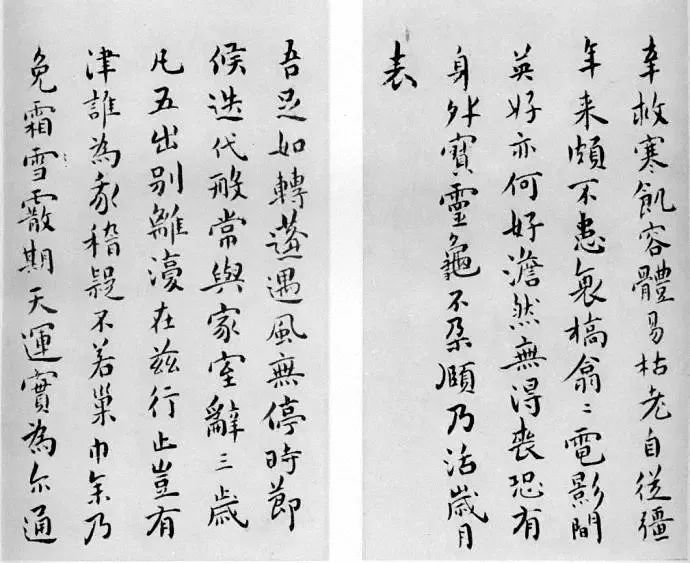 辛救寒飢容體易枯老自從彊
年来頗不患衰槁翕〻電影間
英好亦何好澹然無得喪恐有
身外寶靈龜不朶頤乃活歲月
表
吾足如轉蓬遇風無停時節
候迭代殷常與家室辭三歲
凡五出別離在兹行止豈有
津誰為我稽疑不若巢巾乃
免霜雪霰期天運實為尔通